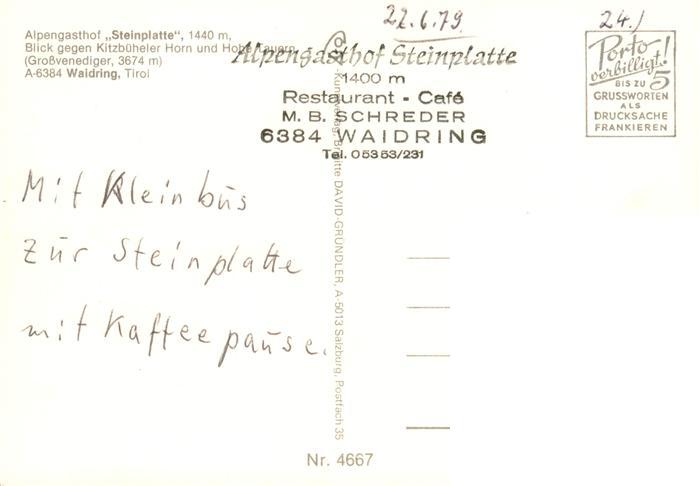 22.6.79
24./
Alpengasthof „Steinplatte", 1440 m,
Blick gegen Kitzbüheler Horn und Hohe Tauern
(Großvenediger, 3674 m)
A-6384 Waidring, Tirol
Alpengasthof Steinplatte
1400 m
Restaurant - Café
M. B. SCHREDER
6384 WAIDRING
Tel. 05353/231
Porto
verbilligt!
BIS ZU 5
GRUSSWORTEN
ALS
DRUCKSACHE
FRANKIEREN
Mit Kleinbus
zur Steinplatte
mit Kaffeepause.
Brigitte DAVID-GRÜNDLER, A-5013 Salzburg, Postfach 35
Nr. 4667